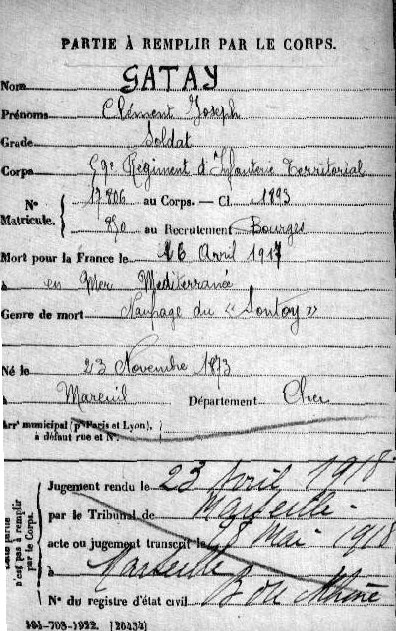 PARTIE À REMPLIR PAR LE CORPS.
Nom GATAY
Prénoms Clément Joseph
Grade Soldat
Corps 59e Régiment d'Infanterie Territorial
N° Matricule. 17.806 au Corps. — Cl. 1893
850 au Recrutement Bourges
Mort pour la France le 16 Avril 1917
à en Mer Méditerranée
Genre de mort Naufrage du « Sontay »
Né le 23 Novembre 1873
à Mareuil Département Cher
Arrt municipal (pr Paris et Lyon),
à défaut rue et N°.
Cette partie n'est pas à remplir par le Corps.
Jugement rendu le 23 Avril 1918
par le Tribunal de Marseille
acte ou jugement transcrit le 28 Mai 1918
à Marseille
N° du registre d'état civil B. du Rhône
[20434]